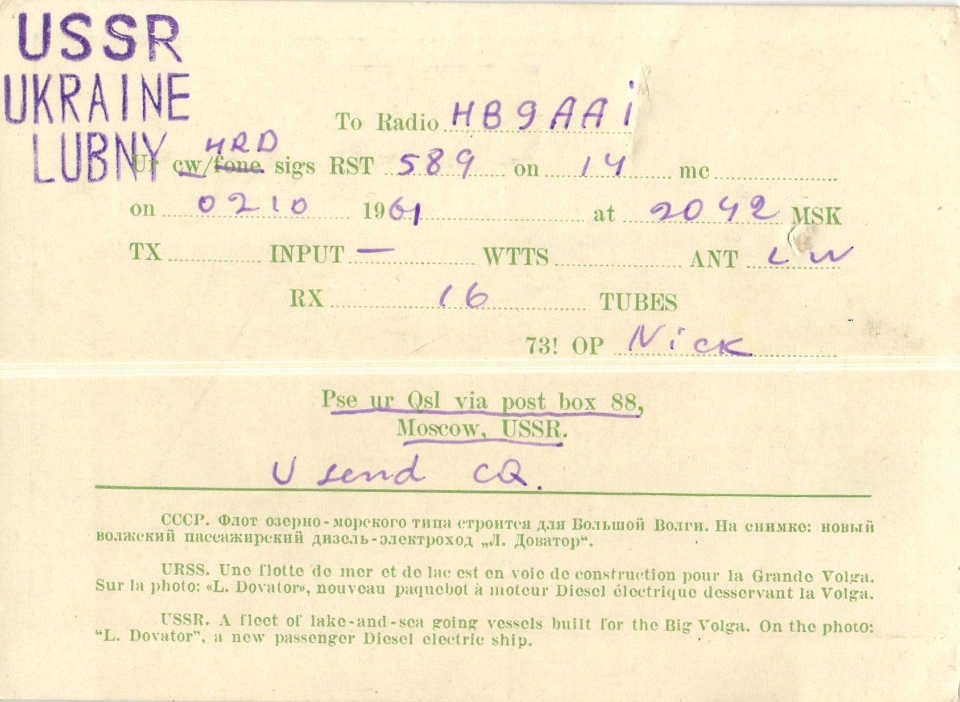 USSR
UKRAINE
LUBNY
To Radio HB9AAi
HRD
Ur cw/fone sigs RST 589 on 14 mc
on 0210 1961 at 2042 MSK
TX INPUT — WTTS ANT LW
RX 16 TUBES
73! OP Nick
Pse ur Qsl via post box 88,
Moscow, USSR.
U send CQ.
СССР. Флот озерно-морского типа строится для Большой Волги. На снимке: новый
волжский пассажирский дизель-электроход „Л. Доватор“.
URSS. Une flotte de mer et de lac est en voie de construction pour la Grande Volga.
Sur la photo: «L. Dovator», nouveau paquebot à moteur Diesel électrique desservant la Volga.
USSR. A fleet of lake-and-sea going vessels built for the Big Volga. On the photo:
“L. Dovator”, a new passenger Diesel electric ship.